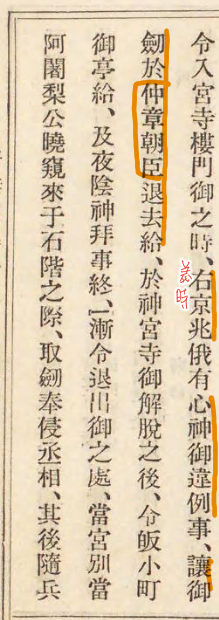 令入宮寺樓門御之時、右京兆俄有心神御違例事、讓御
義時
劔於仲章朝臣退去給、於神宮寺御解脫之後、令皈小町
御亭給、及夜陰神拜事終、漸令退出御之處、當宮別當
阿闍梨公曉窺來于石階之際、取劔奉侵丞相、其後隨兵